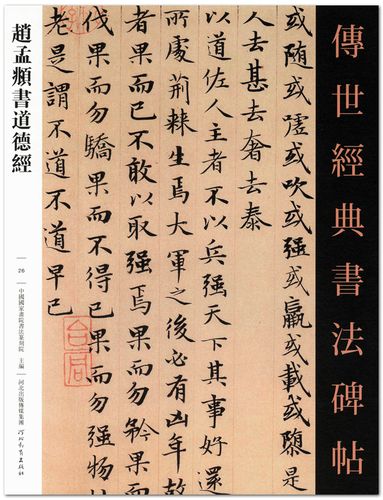 傳世經典書法碑帖
或随或嘘或吹或强或羸或載或隳是
人去甚去奢去泰
以道佐人主者不以兵强天下其事好還
所處荆棘生焉大軍之後必有凶年故
者果而已不敢以取强焉果而勿矜果而勿
伐果而勿驕果而不得已果而勿强物
老是謂不道不道早已
合同
趙孟頫書道德經
26
中國國家畫院書法篆刻院 主編
河北出版傳媒集團 河北教育出版社